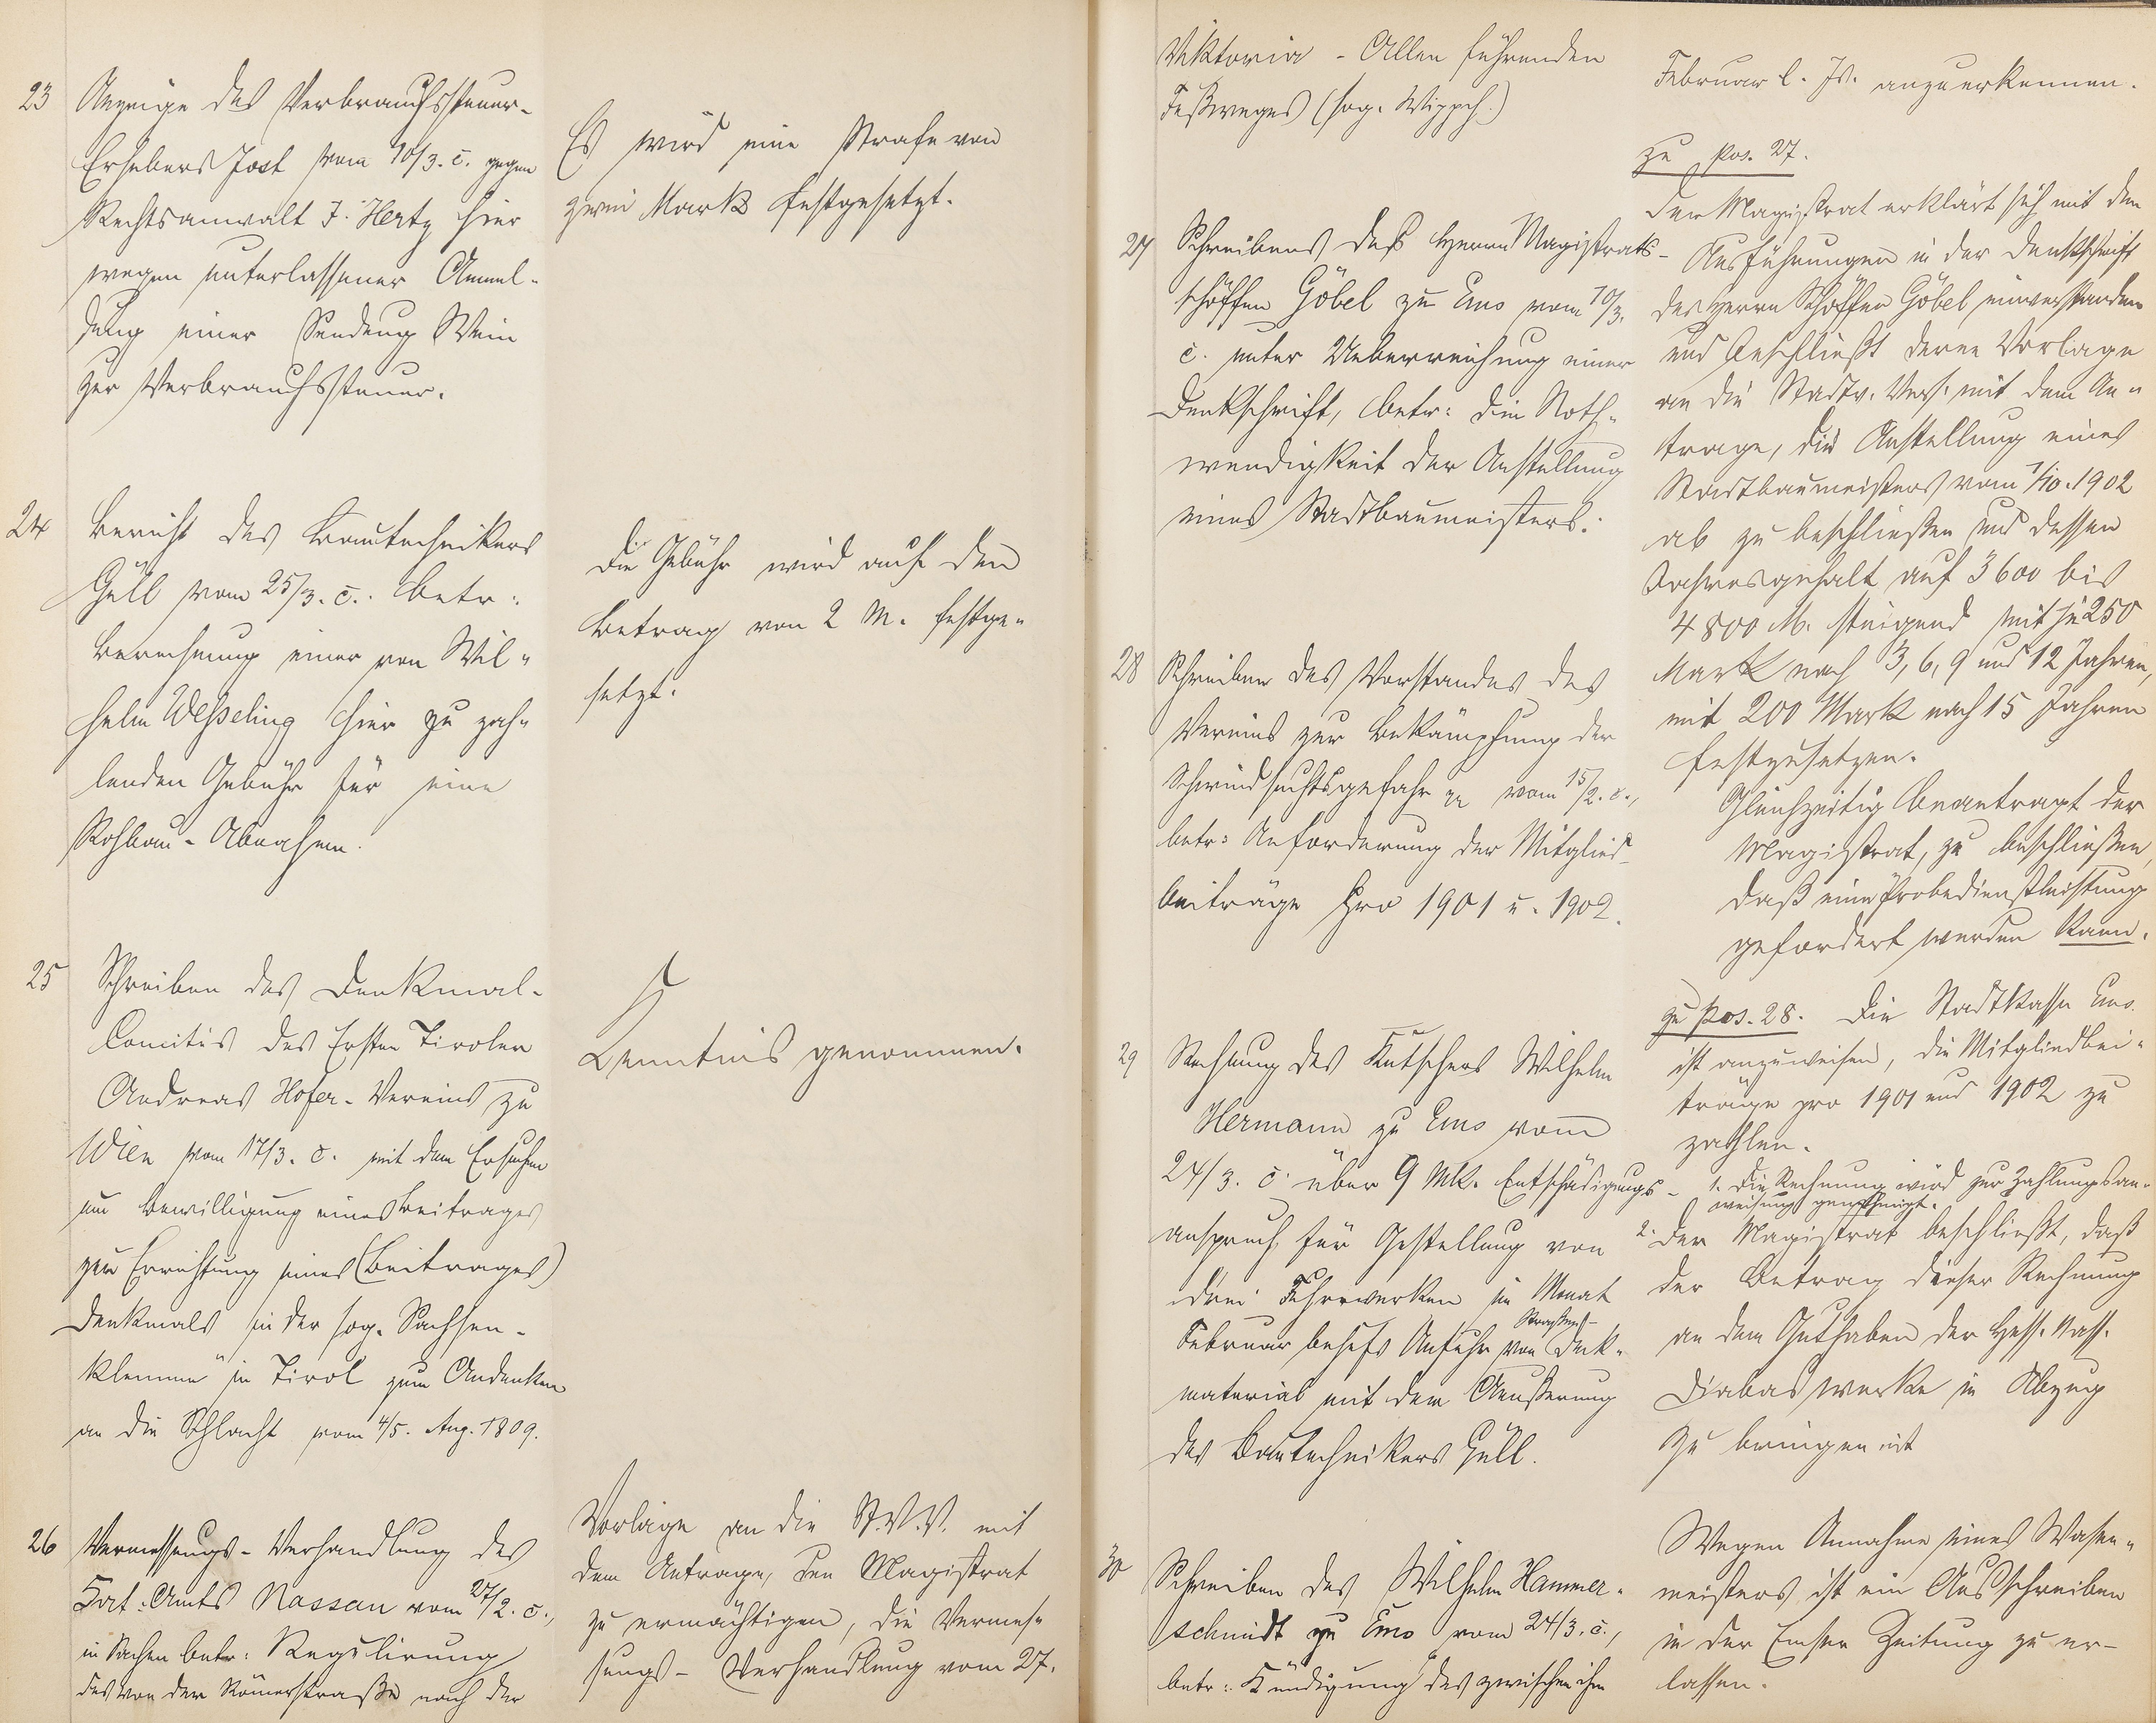 23 Anzeige des Verbrauchssteuer-
Erhebers Jost vom 10/3. c. gegen
Rechtsanwalt J. Hertz hier
wegen unterlassener Anmel-
dung einer Sendung Wein
zur Verbrauchssteuer.
Es wird eine Strafe von
zwei Mark festgesetzt.
24 Bericht des Bautechnikers
Güll vom 25/3. c. betr:
Berechnung einer von Wil-
helm Wesseling hier zu zah-
lenden Gebühr für eine
Rohbau-Abnahme.
Die Gebühr wird auf den
Betrag von 2 M. festge-
setzt.
25 Schreiben des Denkmal-
Comités des Ersten Tiroler
Andreas Hofer-Vereins zu
Wien vom 17/3. c. mit dem Ersuchen
um Bewilligung eines Beitrages
zur Errichtung eines (Beitrages)
Denkmals in der sog. Sachsen-
klemme" in Tirol zum Andenken
an die Schlacht vom 4/5. Aug. 1809.
Kenntnis genommen.
26 Vermessungs-Verhandlung des
Kat. Amts Nassau vom 27/2. c.,
in Sachen betr: Regulirung
des von der Römerstraße nach der
Vorlage an die St.V.V. mit
dem Antrage, den Magistrat
zu ermächtigen, die Vermes-
sungs-Verhandlung vom 27.
Viktoria-Allee führenden
Fußweges (sog. Wippch.)
Februar l. Js. anzuerkennen.
27 Schreibens des Herrn Magistrats-
schöffen Göbel zu Ems vom 10/3.
c. unter Ueberreichung einer
Denkschrift, betr: die Noth-
wendigkeit der Anstellung
eines Stadtbaumeisters.
zu Pos. 27.
Der Magistrat erklärt sich mit den
Ausführungen in der Denkschrift
des Herrn Schöffen Göbel einverstanden
und beschließt deren Vorlage
an die Stadtv. Vers. mit dem An-
trage, die Anstellung eines
Stadtbaumeisters vom 1/10. 1902
ab zu beschließen und dessen
Jahresgehalt auf 3600 bis
4800 M. steigend mit je 250
Mark nach 3, 6, 9 und 12 Jahren,
mit 200 Mark nach 15 Jahren
festzusetzen.
Gleichzeitig beantragt der
Magistrat, zu beschließen,
daß eine Probedienstleistung
gefordert werden kann.
28 Schreiben des Vorstandes des
Vereins zur Bekämpfung der
Schwindsuchtsgefahr vom 15/2. c.,
betr: Anforderung der Mitglied-
beiträge pro 1901 u. 1902.
zu Pos. 28. Die Stadtkasse Ems
ist anzuweisen, die Mitgliedbei-
träge pro 1901 und 1902 zu
zahlen.
29 Rechnung des Kutschers Wilhelm
Hermann zu Ems vom
24/3. c. über 9 Mk. Entschädigungs-
anspruch für Gestellung von
drei Fuhrwerken im Monat
Februar behufs Anfuhr von Straßen-Deck-
material mit dem Aeußerung
des Bautechnikers Güll.
1. Die Rechnung wird zur Zahlungsan-
weisung genehmigt.
2. Der Magistrat beschließt, daß
der Betrag dieser Rechnung
an dem Guthaben der Hess. Nass.
Diabaswerke in Abzug
zu bringen ist
30 Schreiben des Wilhelm Hammer-
schmidt zu Ems vom 24/3. c.,
betr: Kündigung des zwischen ihm
Wegen Annahme eines Wasen-
meisters ist ein Ausschreiben
in der Emser Zeitung zu er-
lassen.